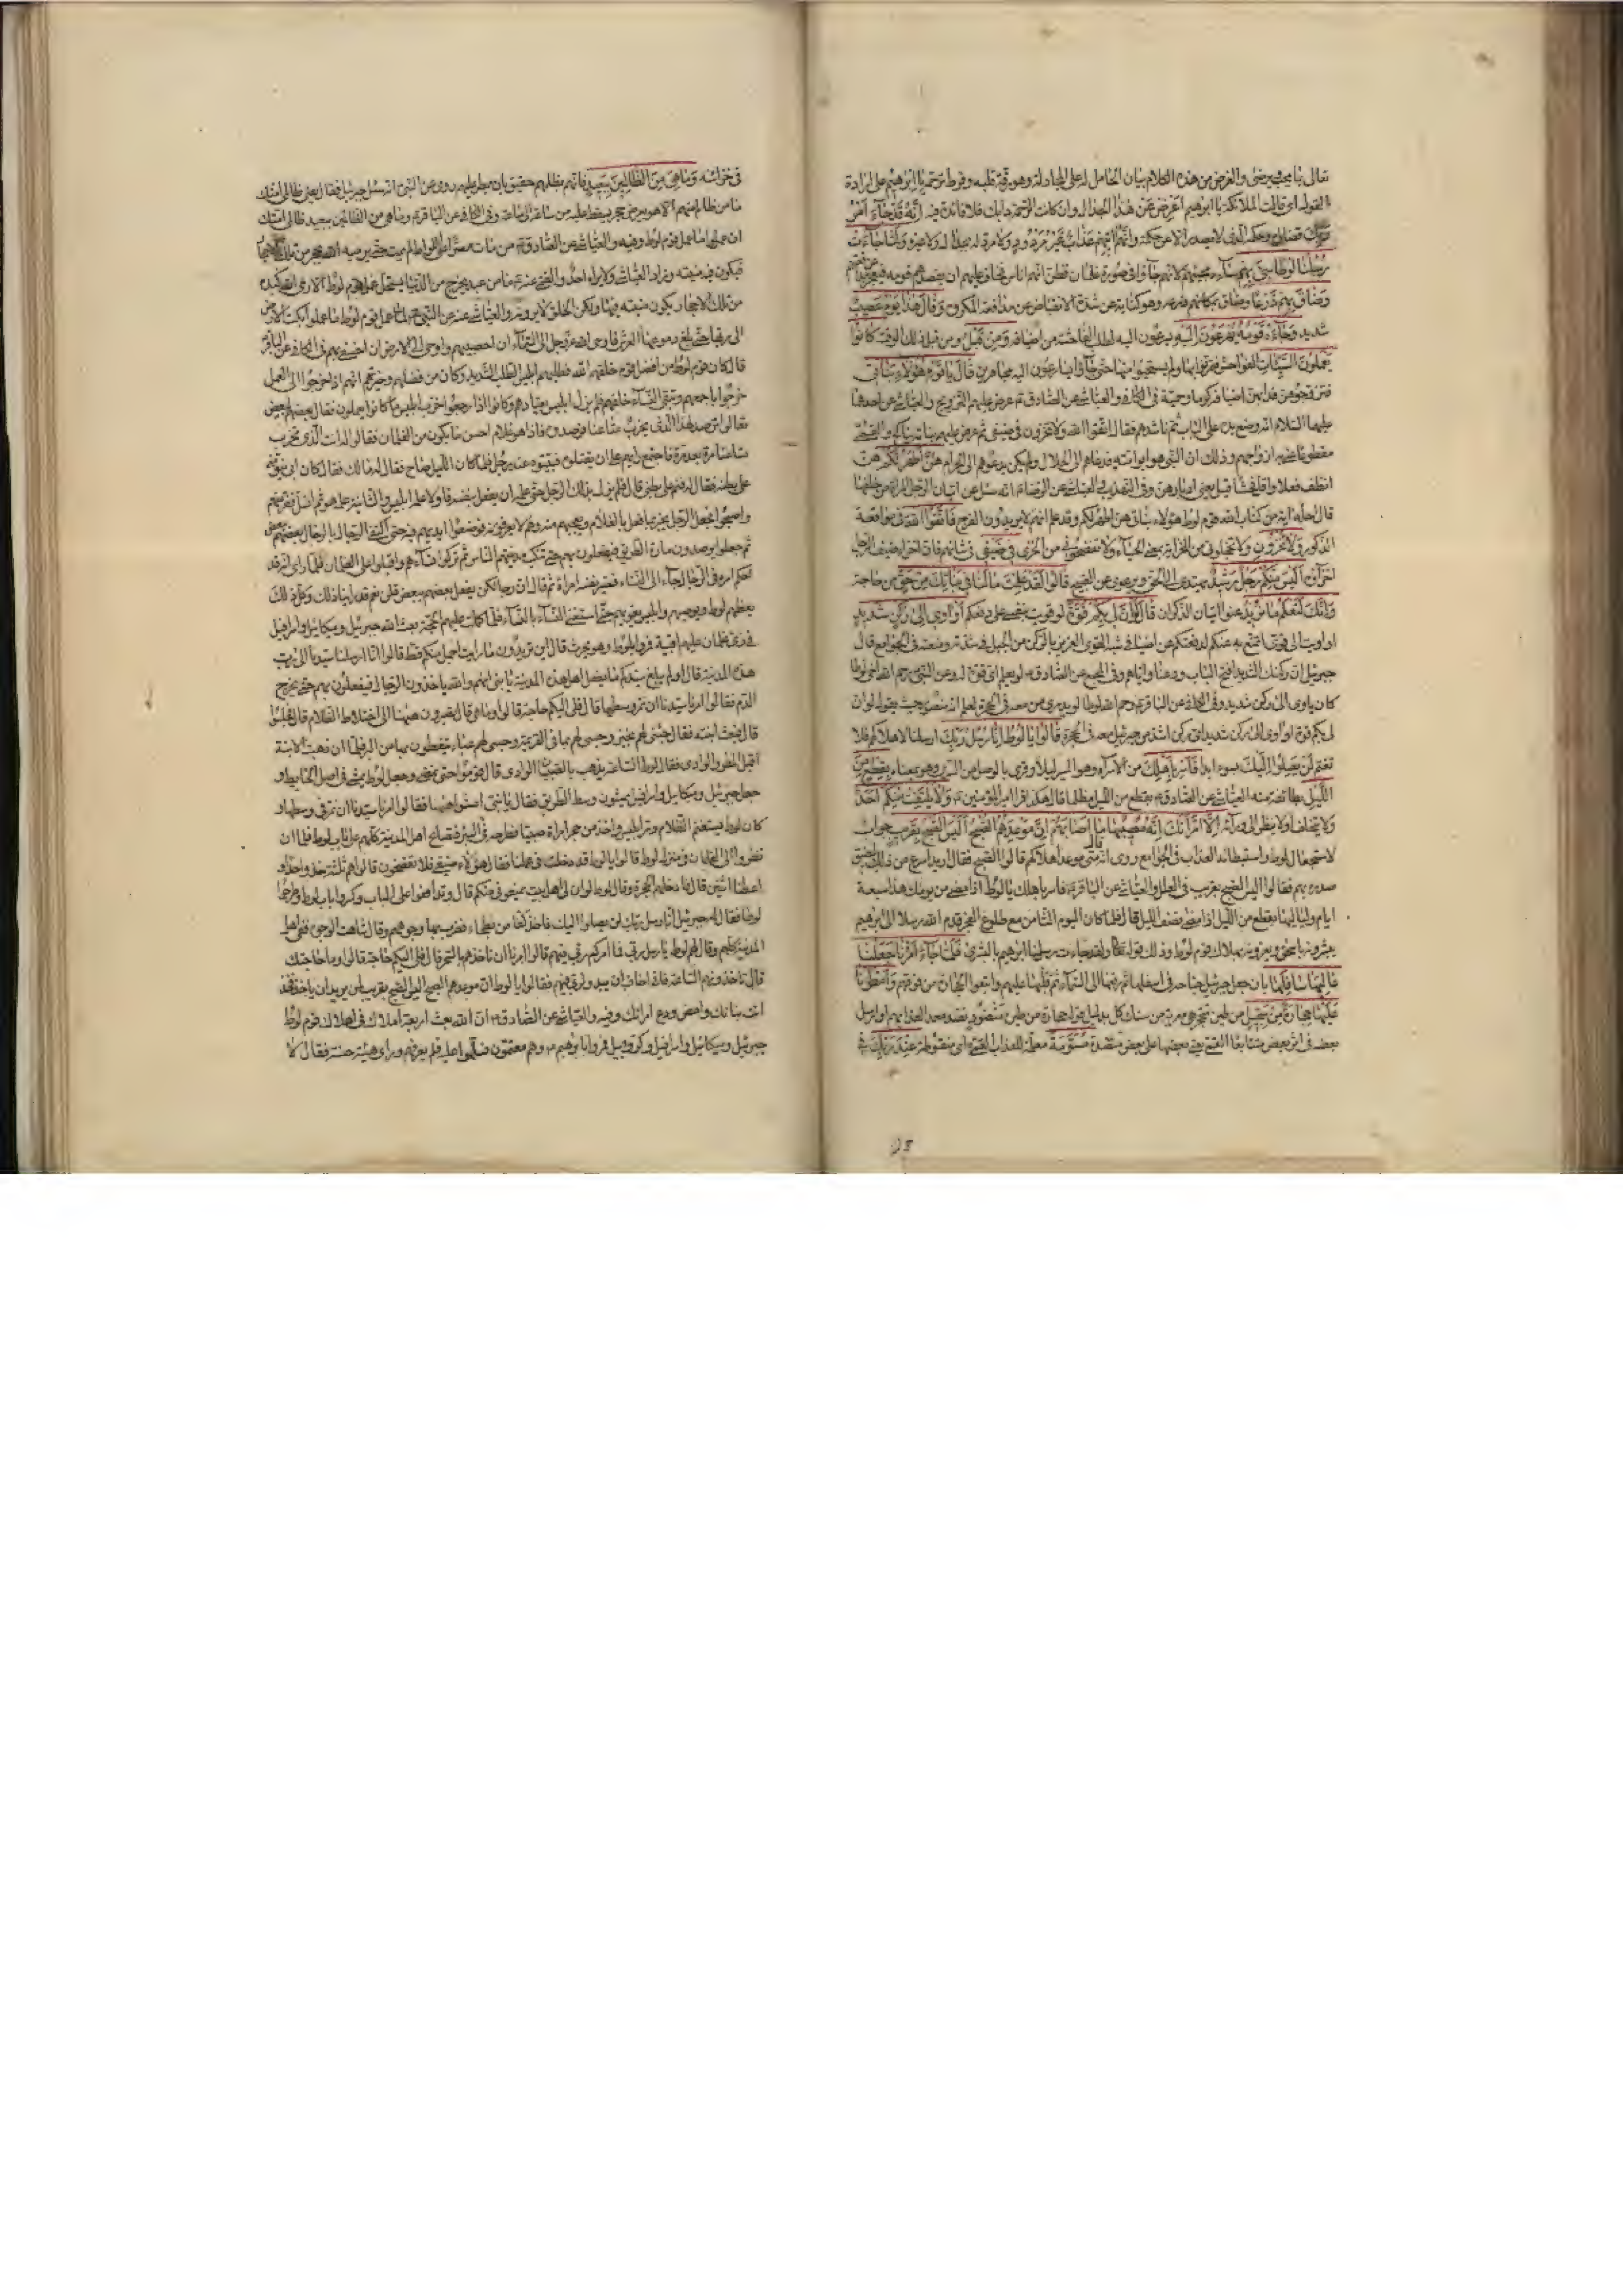 تعالى بما يحب ويرضى والغرض من هذه الكلام بيان الحامل له على المجادلة وهو رقة قلبه وفرط ترحمه يا ابرهيم على ارادة
القول اى قالت الملائكة يا ابرهيم اعرض عن هذا الجدال وان كانت الرحمة دأبك فلا فائدة فيه انه قد جاء امر
ربك قضاؤه وحكمه الذى لا يصدر الا عن حكمة وانهم اتيهم عذاب غير مردود ولا مرد له بجدال ولا غيره ولما جاءت
رسلنا لوطا سئ بهم ساءه مجيئهم لانهم جاؤا فى صورة غلمان فظن انهم اناس فخاف عليهم ان يقصدهم قومه فيعجز عن مدافعتهم
وضاق بهم ذرعا وضاق بمكانهم ذرعه وهو كناية عن شدة الانقباض عن مدافعة المكروه وقال هذا يوم عصيب
شديد وجاءه قومه يهرعون اليه يسرعون اليه لطلب الفاحشة من اضيافه ومن قبل ومن قبل ذلك الوقت كانوا
يعملون السيئات الفواحش فتمرنوا بها ولم يستحيوا منها حتى جاؤا يهرعون اليه مجاهرين قال يا قوم هؤلاء بناتى
فتزوجوهن فدا بهن اضيافه كرما وحمية فى الكافى والعياشى عن الصادق ع عرض عليهم التزويج والعياشى عن احدهما
عليهما السلام انه وضع يده على الباب ثم ناشدهم فقال اتقوا الله ولا تخزون فى ضيفى ثم عرض عليهم بناته بنكاح والقمى
ازواجهم وذلك ان النبى هو ابو امته فدعاهم الى الحلال ولم يكن يدعوهم الى الحرام هن اطهر لكم هن
انظف فعلا واقل فحشا قيل يعنى ادبارهن وفى التهذيب والعياشى عن الرضا ع انه سئل عن اتيان الرجل المرأة من خلفها
قال احلته اية من كتاب الله قول لوط هؤلاء بناتى هن اطهر لكم وقد علم انهم لا يريدون الفرج فاتقوا الله فى مواقعة
الذكور ولا تخزون ولا تخجلونى من الخزاية بمعنى الحياء ولا تفضحونى من الخزى فى ضيفى فى شأنهم فان اخزاء ضيف الرجل
اخزاؤه اليس منكم رجل رشيد يهتدى الى الحق ويرعوى عن القبيح قالوا لقد علمت ما لنا فى بناتك من حق من حاجة
وانك لتعلم ما نريد عنوا اتيان الذكران قال لو ان لى بكم قوة لو قويت بنفسى على دفعكم او اوى الى ركن شديد
او اويت الى قوى اتمنع به عنكم لدفعتكم عن اضيافى شبه القوى العزيز بالركن من الجبل فى شدته ومنعته فى الجوامع قال
جبرئيل ان ركنك لشديد افتح الباب ودعنا واياهم وفى المجمع عن الصادق ع لو يعلم اى قوة له وعن النبى ص رحم الله اخى لوطا
كان ياوى الى ركن شديد وفى الكافى عن الباقر ع رحم الله لوطا لو يدرى من معه فى الحجرة لعلم انه منصور حيث يقول لو ان
لى بكم قوة او اوى الى ركن شديد اى ركن اشد من جبرئيل معه فى الحجرة قالوا يا لوط انا رسل ربك ارسلنا لاهلاكهم فلا
تغتم لن يصلوا اليك بسوء ابدا فاسر باهلك من الاسراء وهو السير ليلا وقرئ بالوصل من السرى وهو بمعناه بقطع من
الليل بطائفة منه العياشى عن الصادق ع بقطع من الليل مظلما قال هكذا قرأ امير المؤمنين ع ولا يلتفت منكم احد
ولا يتخلف او لا ينظر الى ورائه الا امراتك انه مصيبها ما اصابهم ان موعدهم الصبح اليس الصبح بقريب جواب
لاستعجال لوط واستبطائه العذاب فى الجوامع روى انه قال متى موعد اهلاكهم قالوا الصبح فقال اريد اسرع من ذلك لضيق
صدره بهم فقالوا اليس الصبح بقريب فى العلل والعياشى عن الباقر ع فاسر باهلك يا لوط اذا مضى من يومك هذا سبعة
ايام ولياليها بقطع من الليل اذا مضى نصف الليل قال فلما كان اليوم الثامن مع طلوع الفجر قدم الله رسلا الى ابرهيم
يبشرونه باسحق ويعزونه بهلاك قوم لوط وذلك قوله تعالى ولقد جاءت رسلنا ابرهيم بالبشرى فلما جاء امرنا جعلنا
عاليها سافلها بان جعل جبرئيل جناحه فى اسفلها ثم رفعها الى السماء ثم قلبها عليهم واتبعوا الحجارة من فوقهم وامطرنا
عليها حجارة من سجيل من طين متحجر هى معربة من سنك كل بدليل قوله حجارة من طين منضود نضد معدا لعذابهم او ارسل
بعضه فى اثر بعض متتابعا القمى يعنى بعضها على بعض منضدة مسومة معلمة للعذاب القمى اى منقوطة عند ربك فى
فى خزائنه وما هى من الظالمين ببعيد فانهم بظلمهم حقيق بان يمطر عليهم روى عن النبى ص انه سئل جبرئيل فقال يعنى ظالمى امتك
ما من ظالم منهم الا وهو بعرض حجر يسقط عليه من ساعة الى ساعة وفى الكافى عن الباقر ع وما هى من الظالمين ببعيد ظالمى امتك
ان عملوا ما عمل قوم لوط وفيه والعياشى عن الصادق ع من مات مصرا على اللواط لم يمت حتى يرميه الله بحجر من تلك الحجارة
فيكون فيه منيته وزاد العياشى ولا يراه احد والقمى عنه ع ما من عبد يخرج من الدنيا يستحل عمل قوم لوط الا رمى الله كبده
من تلك الاحجار يكون منيته فيها ولكن الخلق لا يرونه والعياشى عنه عن النبى ص لما عمل قوم لوط ما عملوا بكت الارض
الى ربها حتى بلغ دموعها العرش فاوحى الله عز وجل الى السماء ان احصبيهم واوحى الى الارض ان اخسفى بهم فى الكافى عن الباقر
قال كان قوم لوط من افضل قوم خلقهم الله فطلبهم ابليس الطلب الشديد وكان من فضلهم وخيرتهم انهم اذا خرجوا الى العمل
خرجوا باجمعهم وتبقى النساء خلفهم فلم يزل ابليس يعتادهم وكانوا اذا رجعوا خرب ابليس ما كانوا يعملون فقال بعضهم لبعض
تعالوا نرصد لهذا الذى يخرب متاعنا فرصدوه فاذا هو غلام احسن ما يكون من الغلمان فقالوا له انت الذى تخرب
متاعنا مرة بعد مرة فاجتمع رأيهم على ان يقتلوه فبيتوه عند رجل فلما كان الليل صاح فقال له مالك فقال كان ابى ينومنى
على بطنه فقال له فنم على بطنى قال فلم يزل بذلك الرجل حتى علمه ان يفعل بنفسه فاولا علمه ابليس والثانية علمه هو ثم انسل ففر منهم
واصبحوا فجعل الرجل يخبر بما فعل بالغلام ويعجبهم منه وهم لا يعرفونه فوضعوا ايديهم فيه حتى اكتفى الرجال بالرجال بعضهم ببعض
ثم جعلوا يرصدون مارة الطريق فيفعلون بهم حتى تنكب مدينتهم الناس ثم تركوا نساءهم واقبلوا على الغلمان فلما راى انه قد
احكم امره فى الرجال جاء الى النساء فصير نفسه امرأة ثم قال ان رجالكن يفعل بعضهم ببعض قلن نعم قد راينا ذلك وكل ذلك
يعظهم لوط ويوصيهم وابليس يغويهم حتى استغنى النساء بالنساء فلما كملت عليهم الحجة بعث الله جبرئيل وميكائيل واسرافيل
فى زى غلمان عليهم اقبية فمروا بلوط وهو يحرث قال اين تريدون ما رايت اجمل منكم قط قالوا انا ارسلنا سيدنا الى رب
هذه المدينة قال اولم يبلغ سيدكم ما يفعل اهل هذه المدينة يا بنى انهم والله ياخذون الرجال فيفعلون بهم حتى يخرج
الدم فقالوا امرنا سيدنا ان نمر وسطها قال فلى اليكم حاجة قالوا وما هى قال تصبرون ههنا الى اختلاط الظلام قال فجلسوا
قال فبعث ابنته فقال جيئى لهم بخبز وجيئى لهم بماء فى القرعة وجيئى لهم عباء يتغطون بها من البرد فلما ان ذهبت الابنة
اقبل المطر والوادى فقال لوط الساعة يذهب بالصبيان الوادى قال قوموا حتى نمضى وجعل لوط يمشى فى اصل الحايط و
جعل جبرئيل وميكائيل واسرافيل يمشون وسط الطريق فقال يا بنى امشوا ههنا فقالوا امرنا سيدنا ان نمر فى وسطها و
كان لوط يستغنم الظلام ومر ابليس واخذ من حجر امراة صبيا فطرحه فى البئر فتصايح اهل المدينة كلهم على باب لوط فلما ان
نظروا الى الغلمان فى منزل لوط قالوا يا لوط قد دخلت فى عملنا فقال هؤلاء ضيفى فلا تفضحون قالوا هم ثلثة خذ واحدا و
اعطنا اثنين قال فادخلهم الحجرة وقال لوط لو ان لى اهل بيت يمنعونى منكم قال وتدافعوا على الباب وكسروا باب لوط وطرحوا
لوطا فقال له جبرئيل انا رسل ربك لن يصلوا اليك فاخذ كفا من بطحاء فضرب بها وجوههم وقال شاهت الوجوه فعمى اهل
المدينة كلهم وقال لهم لوط يا رسل ربى فما امركم ربى فيهم قالوا امرنا ان ناخذهم بالسحر قال فلى اليكم حاجة قالوا وما حاجتك
قال تاخذونهم الساعة فانى اخاف ان يبدو لربى فيهم فقالوا يا لوط ان موعدهم الصبح اليس الصبح بقريب لمن يريد ان ياخذ فخذ
انت بناتك وامض ودع امراتك وفيه والعياشى عن الصادق ع ان الله بعث اربعة املاك فى اهلاك قوم لوط
جبرئيل وميكائيل واسرافيل وكروبيل فمروا بابرهيم ع وهم معتمون فسلموا عليه فلم يعرفهم وراى هيئة حسنة فقال لا